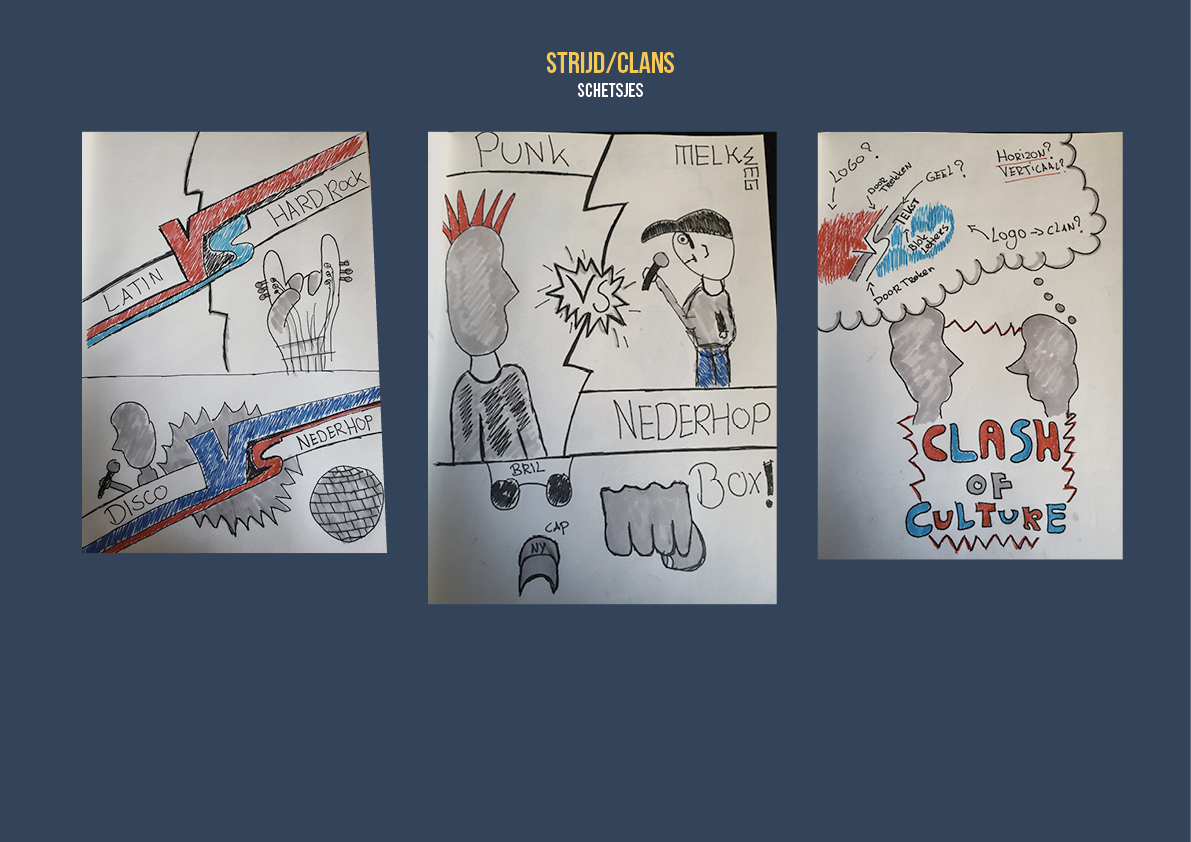 STRIJD/CLANS
SCHETSJES
VS
HARD ROCK
LATIN
VS
NEDERHOP
DISCO
PUNK
MELK
WEG
VS
NEDERHOP
BRIL
BOX!
CAP
NY
LOGO?
DOOR TREKKEN
GEEL?
HORIZON?
VERTICAAL?
TEKST
BLOK
LETTERS
LOGO → CLAN?
DOOR TREKEN
CLASH
OF
CULTURE